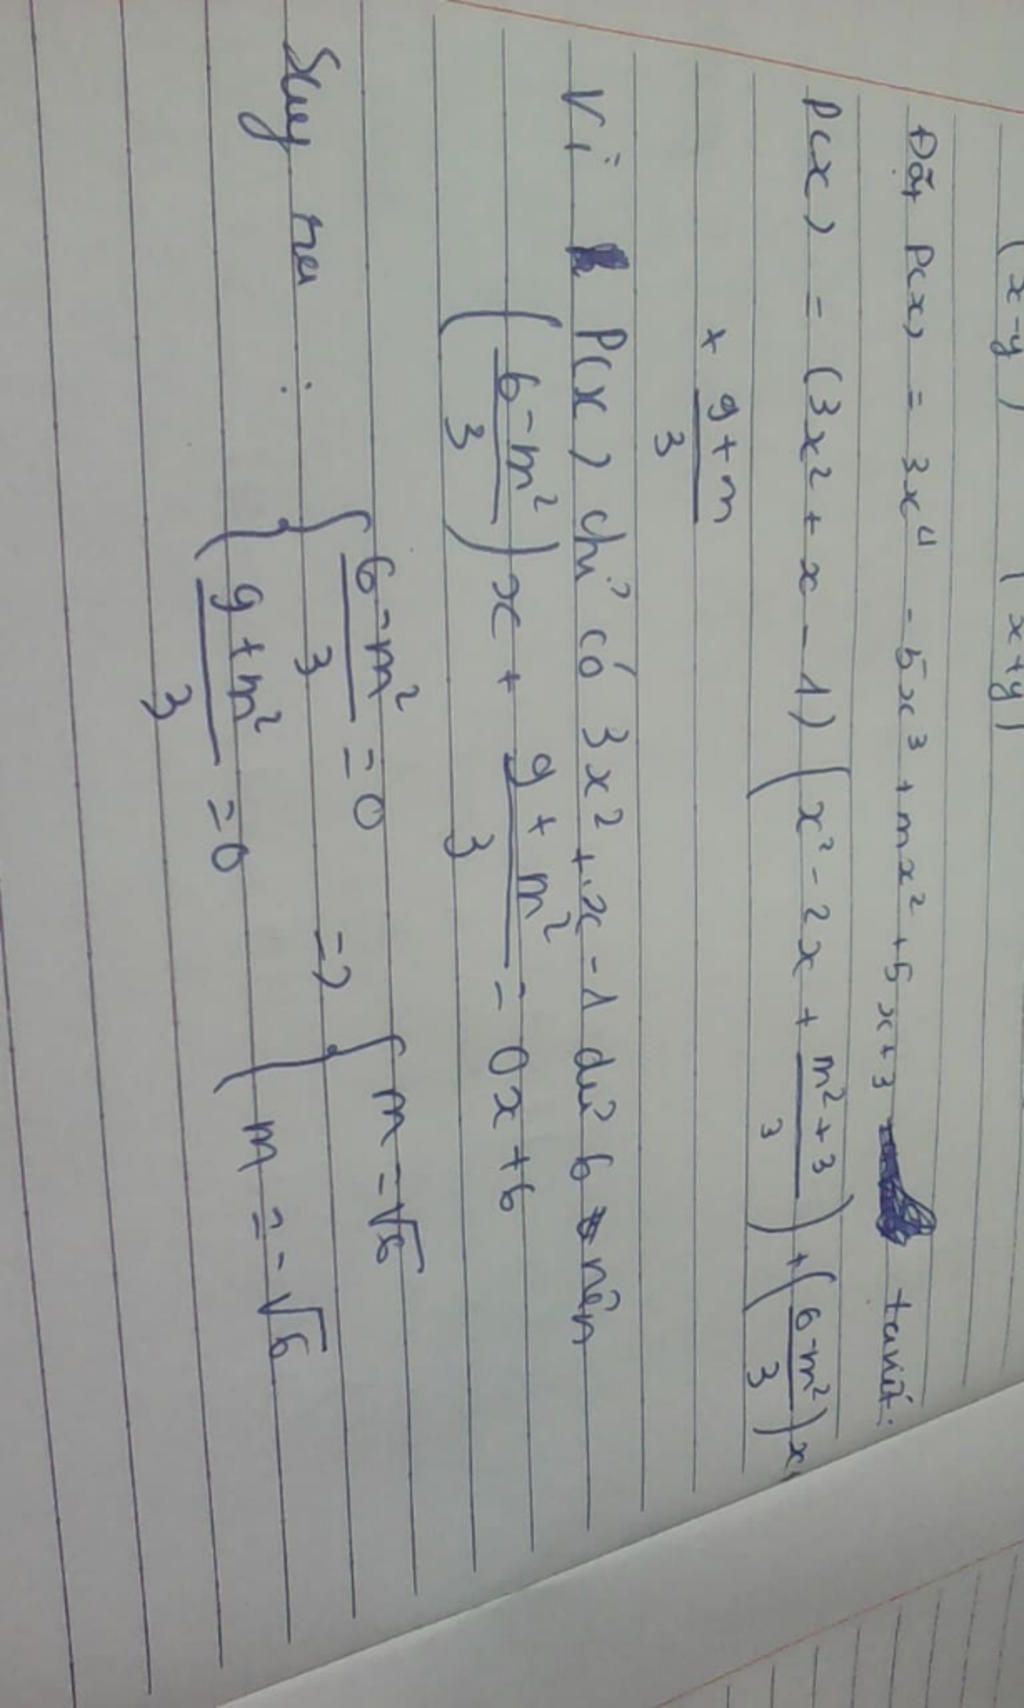 (x-y) (x+y)
Đặt P(x) = 3x⁴ - 5x³ + mx² + 5x+3 ta viết:
P(x) = (3x² + x - 1) (x² - 2x + \frac{m²+3}{3}) + (\frac{6-m²}{3})x
+ \frac{9+m}{3}
Vì P(x) chỉ có 3x² + x - 1 dư 6 nên
(\frac{6-m²}{3}) x + \frac{9+m²}{3} = 0x+6
Suy ra : { \frac{6-m²}{3} = 0 => { m = √6
{ \frac{9+m²}{3} = 0 { m = -√6